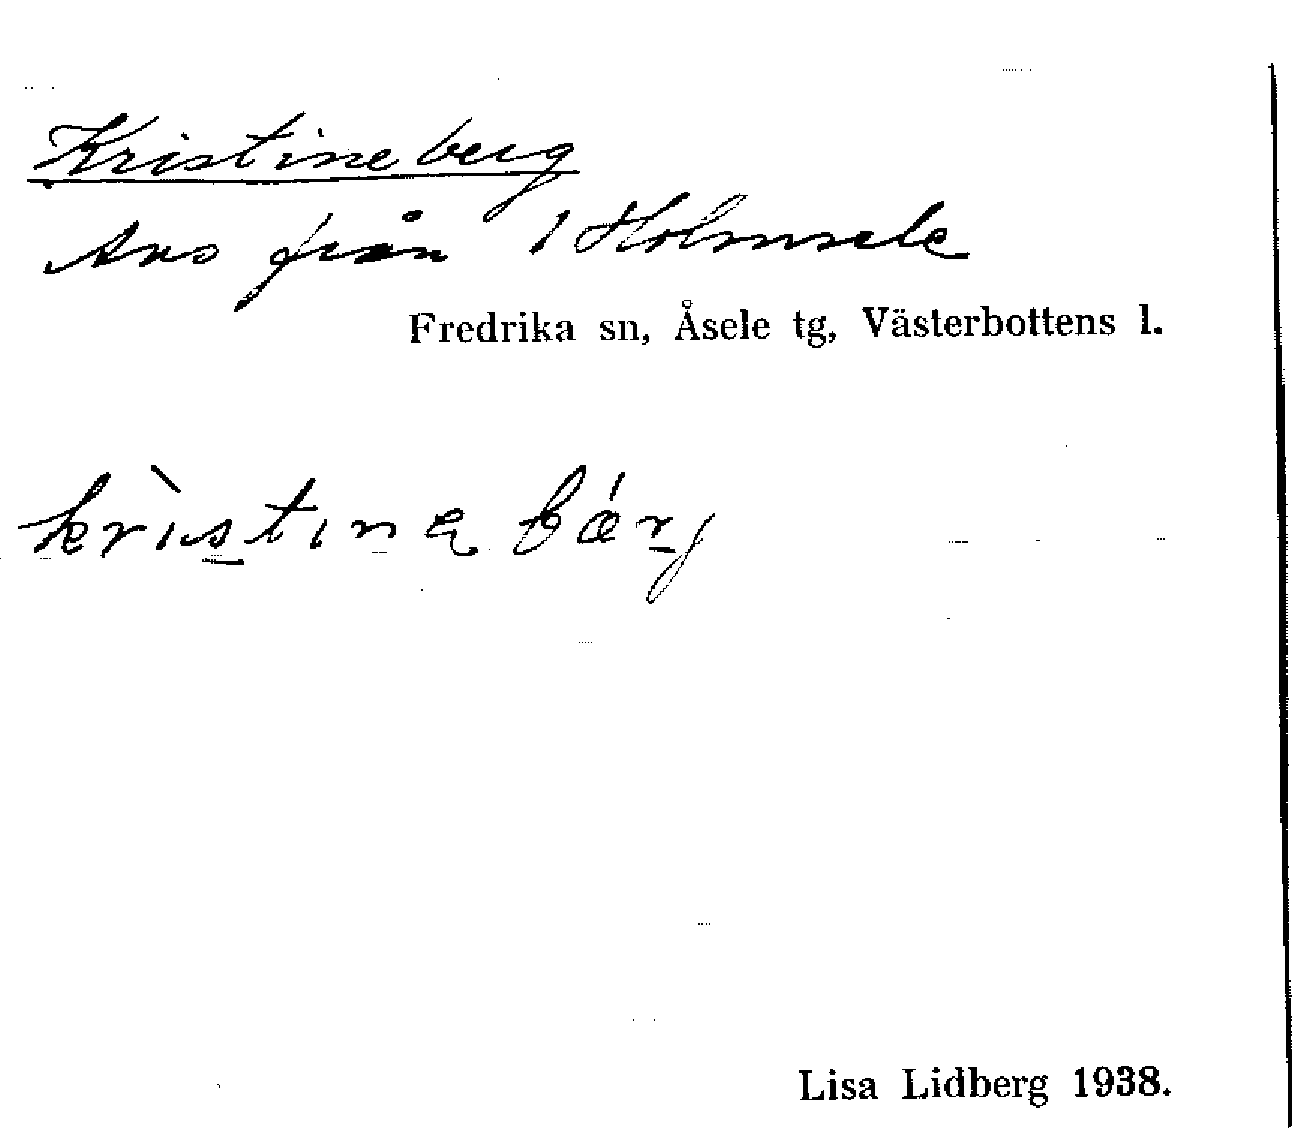 Kristineberg
Avs från 1 Holmsele
Fredrika sn, Åsele tg, Västerbottens l.
krìstina bǽrj
Lisa Lidberg 1938.